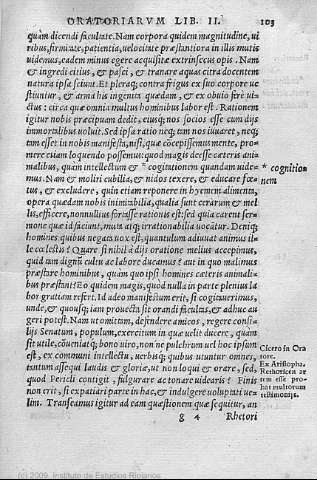 ORATORIARVM LIB. II. 103
quàm dicendi facultate. Nam corpora quidem magnitudine, ui
ribus, firmitate, patientia, uelocitate præstantiora in illis mutis
uidemus, eadem minus egere acquisitæ extrinsecus opis. Nam
& ingredi citius, & pasci, & tranare aquas citra docentem
natura ipsa sciunt. Et pleraq; contra frigus ex suo corpore ue
stiuntur, & arma his ingenita quædam, & ex obuio ferè ui
ctus: circa quæ omnia multus hominibus labor est. Rationem
igitur nobis præcipuam dedit, eiusq; nos socios esse cum dijs
immortalibus uoluit. Sed ipsa ratio neq; tam nos iuuaret, neq;
tam esset in nobis manifesta, nisi, quæ cōcepissemus mente, pro
mere etiam loquendo possemus: quod magis deesse cæteris ani-
malibus, quàm intellectum & * cogitationem quandam uide-
mus. Nam & moliri cubilia, & nidos texere, & educare fœ-
tus, & excludere, quin etiam reponere in hyemem alimenta,
opera quædam nobis inimitabilia, qualia sunt cerarum & mel
lis, efficere, nonnullius fortasse rationis est: sed quia carent ser-
mone quæ id faciunt, muta atq; irrationabilia uocātur. Deniq;
homines quibus negata uox est, quantulum adiuuat animus il-
le cælestis? Quare si nihil à dijs oratione melius accepimus,
quid tam dignū cultu ac labore ducamus? aut in quo malimus
præstare hominibus, quàm quo ipsi homines cæteris animali-
bus præstant? Eo quidem magis, quòd nulla in parte plenius la
bor gratiam refert. Id adeo manifestum erit, si cogitauerimus,
unde, & quousq; iam prouecta sit orandi facultas, & adhuc au
geri potest. Nam ut omittam, defendere amicos, regere consi-
lijs Senatum, populum, exercitum in quæ uelit ducere, quàm
sit utile, cōueniatq; bono uiro, non'ne pulchrum uel hoc ipsum
est, ex communi intellectu, uerbisq; quibus utuntur omnes,
tantum assequi laudis & gloriæ, ut non loqui & orare, sed,
quod Pericli contigit, fulgurare ac tonare uidearis? Finis
non erit, si expatiari parte in hac, & indulgere uoluptati ue-
lim. Transeamus igitur ad eam quæstionem quæ sequitur, an
g 4 Rhetori
* cognitio
nem
Cicero in Ora
tore.
Ex Aristopha.
Rethoricen ar
tem esse pro-
bat multorum
testimonijs.
(c) 2009. Instituto de Estudios Riojanos